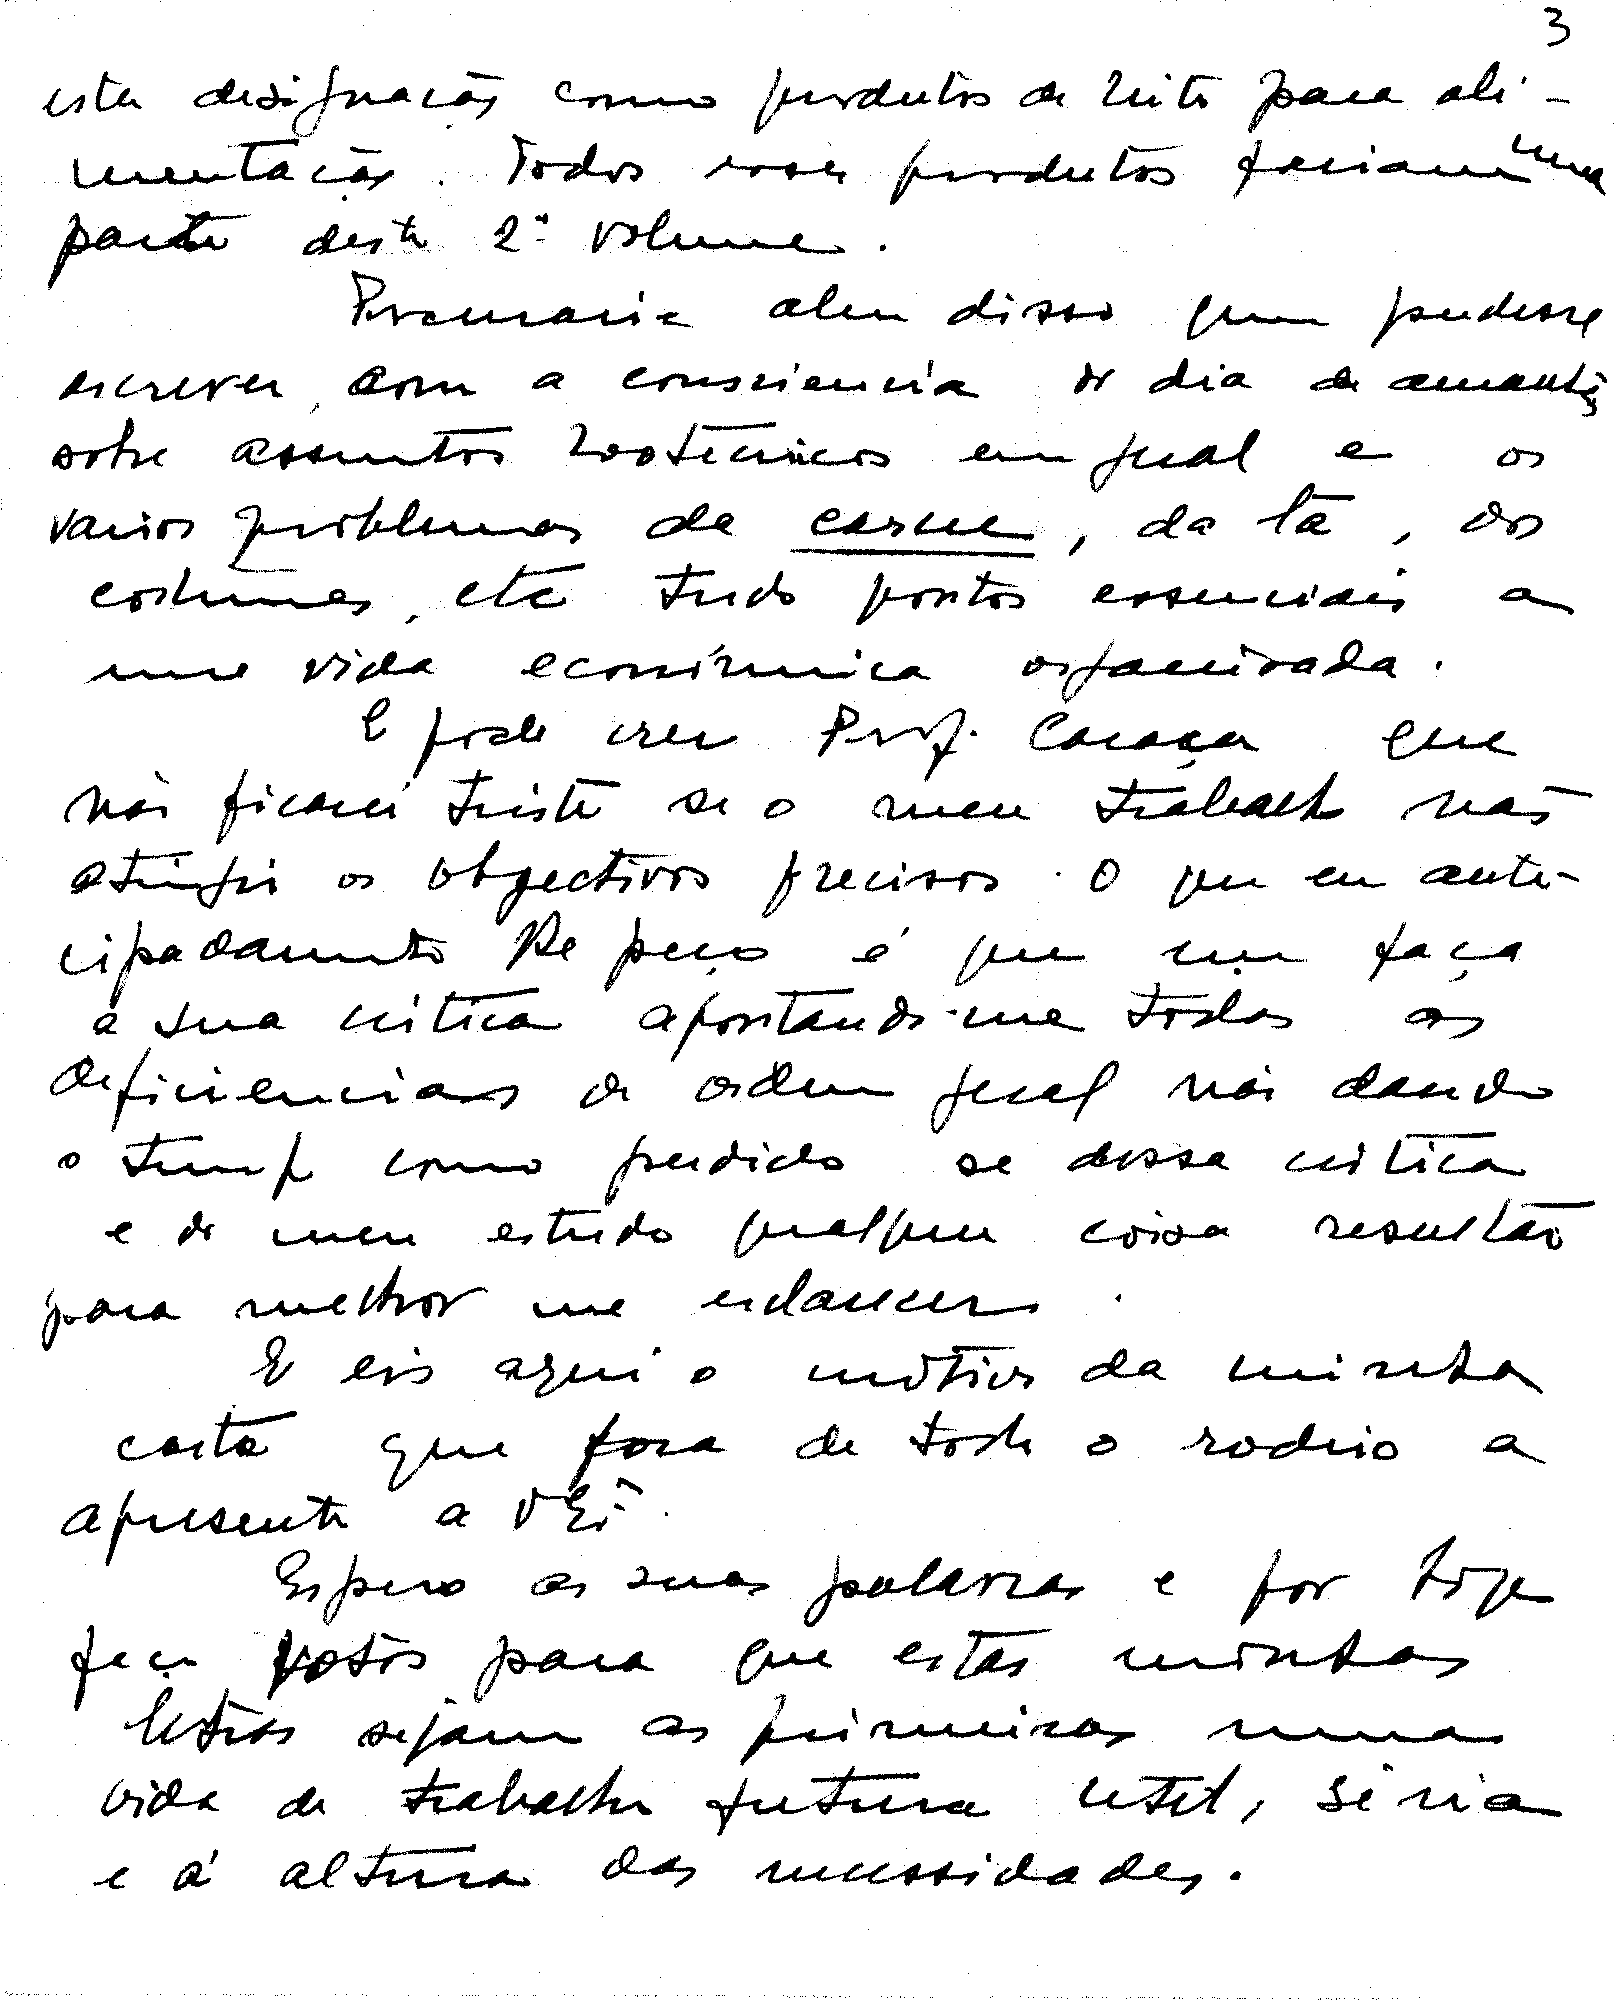 3
esta designação como produtos de leite para ali-
mentação. Todos esses produtos fariam uma
parte deste 2º volume.
Procuraria alem disso quem pudesse
escrever, com a consciencia do dia de amanhã,
sobre assuntos zootecnicos em geral e os
varios problemas da carne, da lã, dos
costumes, etc tudo pontos essenciais a
uma vida económica organizada.
E pode crer Prof. Caraça que
não ficarei triste se o meu trabalho não
atingir os objectivos precisos. O que eu ante-
cipadamente lhe peço é que me faça
a sua critica apontando-me todas as
deficiencias de ordem geral não dando
o tempo como perdido se dessa critica
e do meu estudo qualquer coisa resultar
para melhor me esclarecer.
E eis aqui o motivo da minha
carta que fora de todo o rodeio a
apresento a V Exª.
Espero as suas palavras e por hoje
faço votos para que estas minhas
letras sejam as primeiras numa
vida de trabalho futura util, séria
e á altura das necessidades.